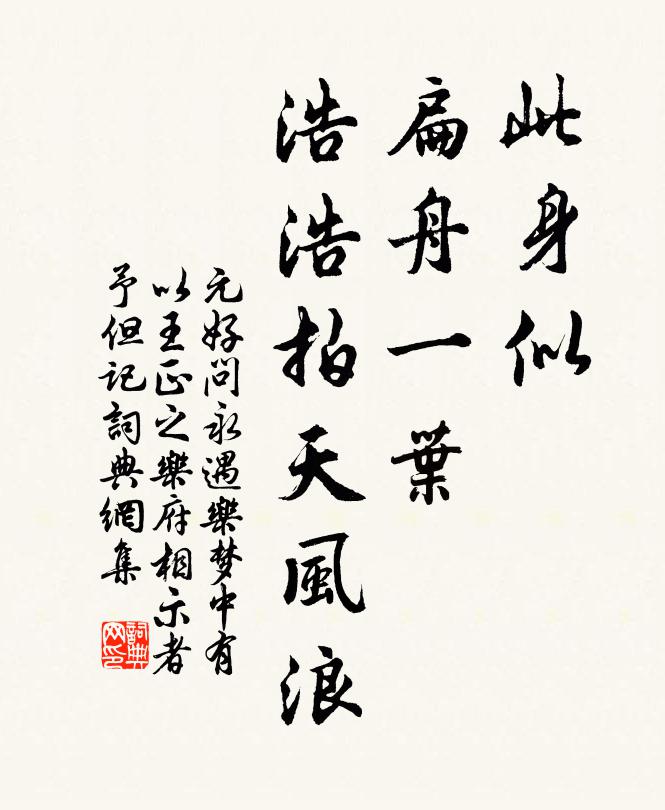 此身似
扁舟一葉
浩浩拍天風浪
元好問永遇樂梦中有
以王正之樂府相示者
予但记詞典網集
詞典网印